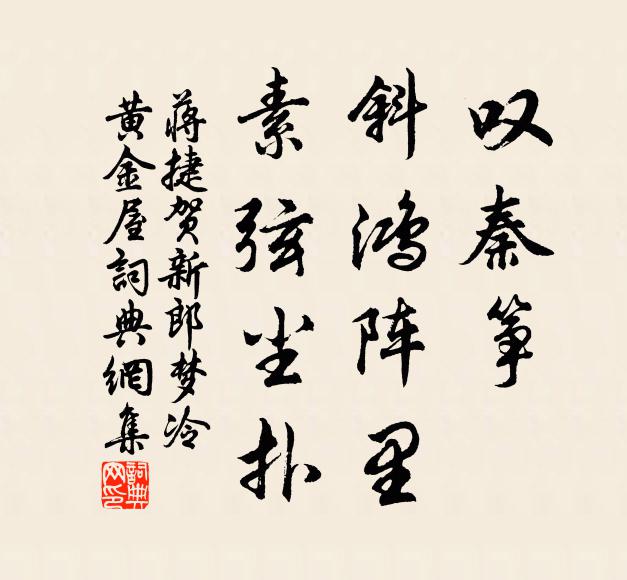 叹秦筝
斜鸿阵里
素弦尘扑
蒋捷贺新郎梦冷
黄金屋詞典網集
詞典网印